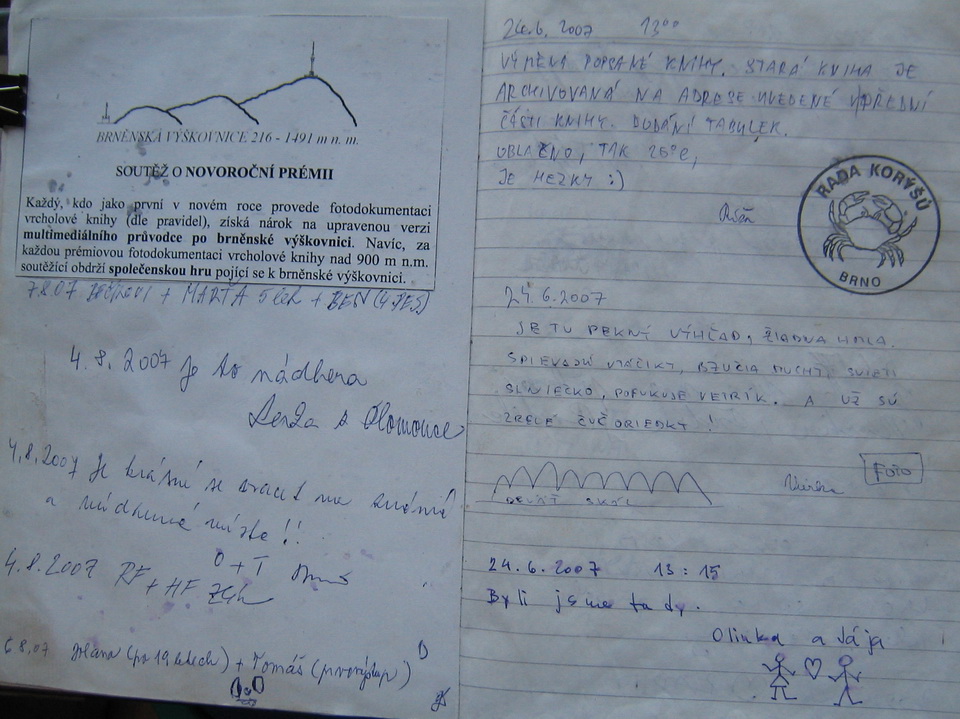 BRNĚNSKÁ VÝŠKOVNICE 216 - 1491 m n. m.
SOUTĚŽ O NOVOROČNÍ PRÉMII
Každý, kdo jako první v novém roce provede fotodokumentaci
vrcholové knihy (dle pravidel), získá nárok na upravenou verzi
multimediálního průvodce po brněnské výškovnici. Navíc, za
každou prémiovou fotodokumentaci vrcholové knihy nad 900 m n.m.
soutěžící obdrží společenskou hru pojící se k brněnské výškovnici.
7.8.07 + MARŤA 5 let + BEN (4 PES)
4.8.2007 Je to nádhera
z Olomouce
4.8.2007 Je krásné se vracet na známá
a nádherná místa!!
4.8.2007 RF + HF O + T
6.8.07 (po 19 letech) + Tomáš (prvovýstup)
24.6.2007 13°°
VÝMĚNA POPSANÉ KNIHY. STARÁ KNIHA JE
ARCHIVOVANÁ NA ADRESE UVEDENÉ V PŘEDNÍ
ČÁSTI KNIHY. DODÁNÍ TABULEK.
OBLAČNO, TAK 25°C,
JE HEZKY :)
RADA KORÝŠŮ
BRNO
24.6.2007
JE TU PEKNÝ VÝHĽAD, ŽIADNA HMLA.
SPIEVAJÚ VTÁČIKY, BZUČIA MUCHY, SVIETI
SLNIEČKO, POFUKUJE VETRÍK. A UŽ SÚ
ZRELÉ ČUČORIEDKY!
DEVÄŤ SKÁL
FOTO
24.6.2007 13:15
Byli jsme tady.
Olinka a Jája